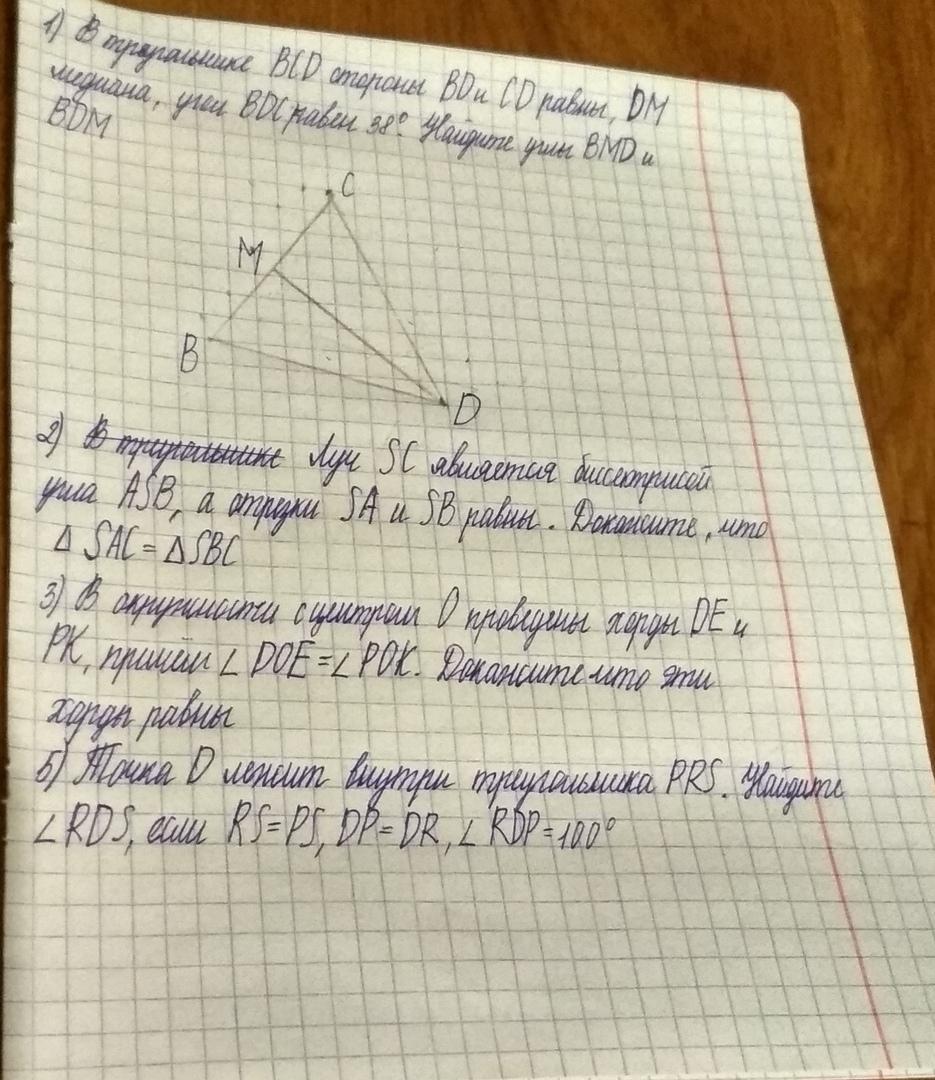 1) В треугольнике BCD стороны BD и CD равны, DM
медиана, угол BDC равен 38°. Найдите углы BMD и
BDM
C
M
B
D
2) В треугольнике Луч SC является биссектрисой
угла ASB, а отрезки SA и SB равны. Докажите, что
Δ SAC = Δ SBC
3) В окружности с центром O проведены хорды DE и
PK, причём ∠ DOE = ∠ POK. Докажите что эти
хорды равны
5) Точка D лежит внутри треугольника PRS. Найдите
∠ RDS, если RS = PS, DP = DR, ∠ RDP = 100°